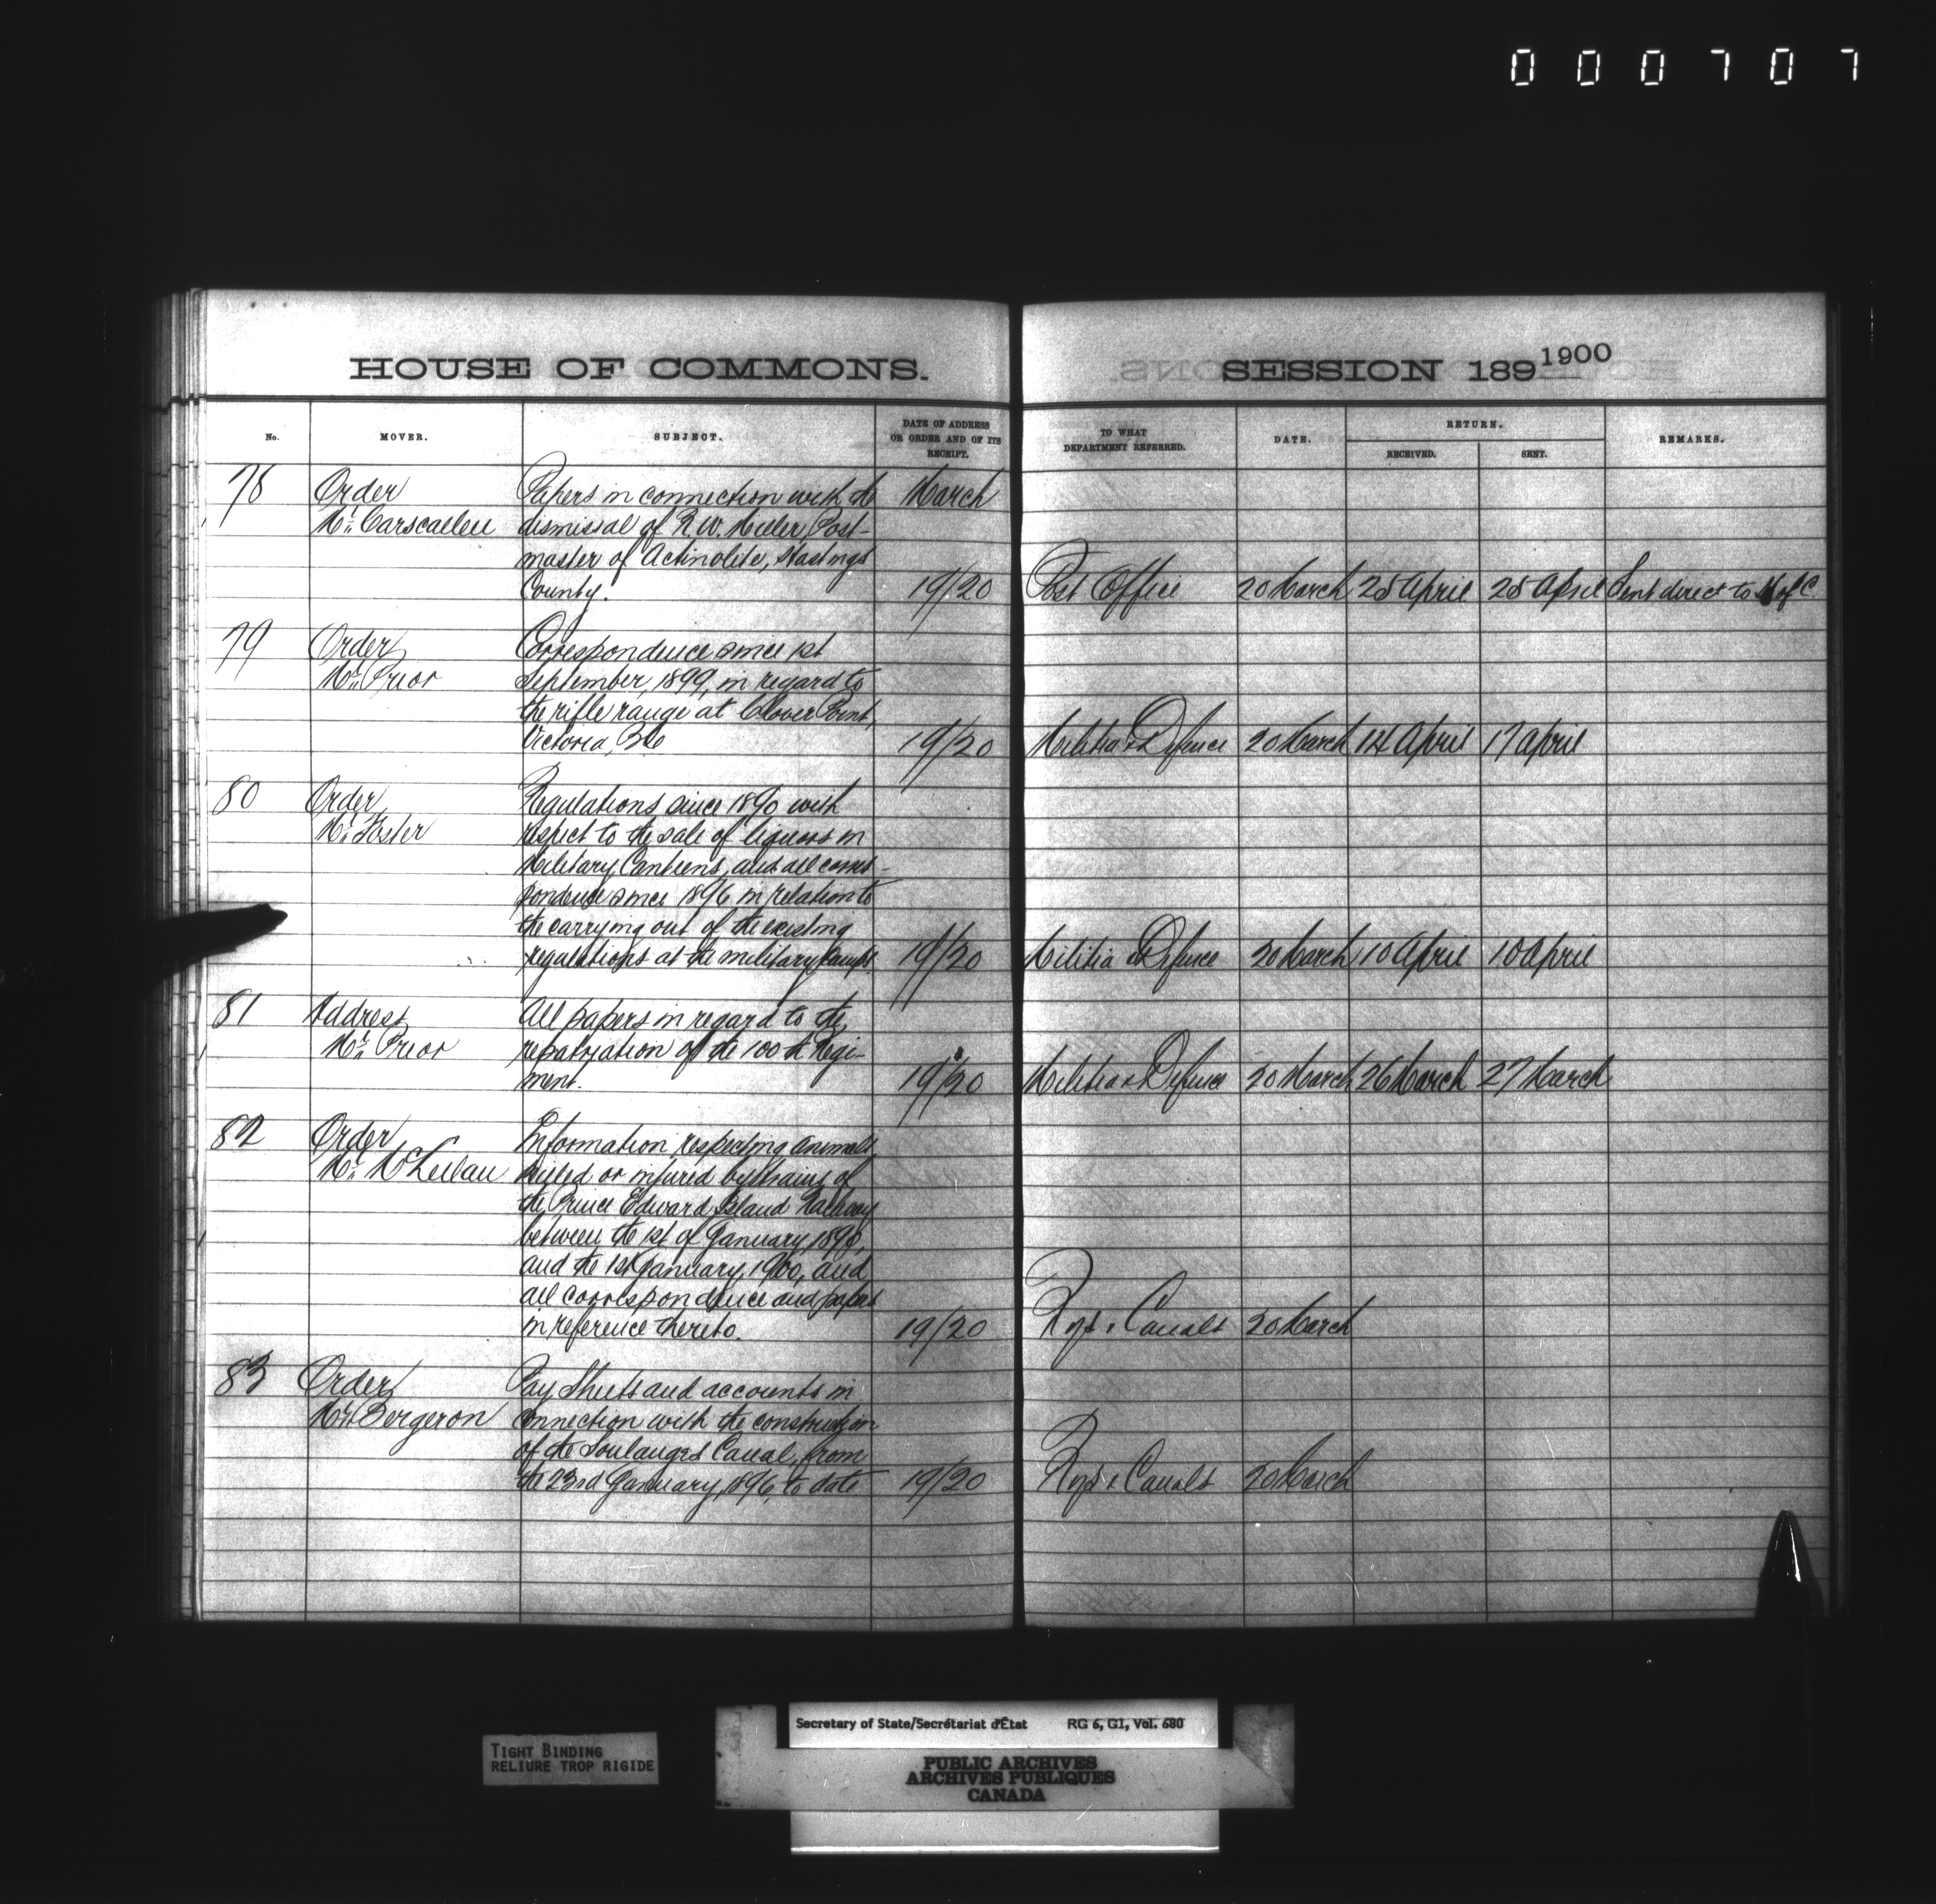 000707
HOUSE OF COMMONS.
SESSION 189 1900
No.
MOVER.
SUBJECT.
DATE OF ADDRESS
OR ORDER AND OF ITS
RECEIPT.
TO WHAT
DEPARTMENT REFERRED.
DATE.
RETURN.
RECEIVED.
SENT.
REMARKS.
78 Order Papers in connection with the March
Mr. Carscallen dismissal of R.W. Miller, Post-
master of Actinolite, Hastings
County. 19/20 Post Office 20 March 25 April 25 April Sent direct to H of C
79 Order Correspondence since 1st
Mr. Prior September, 1899, in regard to
the rifle range at Clover Point,
Victoria, BC 19/20 Militia & Defence 20 March 14 April 17 April
80 Order Regulations since 1890 with
Mr. Foster respect to the sale of liquors in
Military Canteens, and all corres-
pondence since 1896 in relation to
the carrying out of the existing
regulations at the military camps 19/20 Militia & Defence 20 March 10 April 10 April
81 Address All papers in regard to the
Mr. Prior repatriation of the 100th Regi-
ment. 19/20 Militia & Defence 20 March 26 March 27 March
82 Order Information respecting animals
Mr. McLellan killed or injured by trains of
the Prince Edward Island Railway
between the 1st of January, 1896,
and the 1st January, 1900, and
all correspondence and papers
in reference thereto. 19/20 Rys & Canals 20 March
83 Order Pay Sheets and accounts in
Mr. Bergeron connection with the construction
of the Soulanges Canal, from
the 23rd January, 1896, to date 19/20 Rys & Canals 20 March
TIGHT BINDING
RELIURE TROP RIGIDE
Secretary of State/Secrétariat d'État RG 6, G1, Vol. 680
PUBLIC ARCHIVES
ARCHIVES PUBLIQUES
CANADA